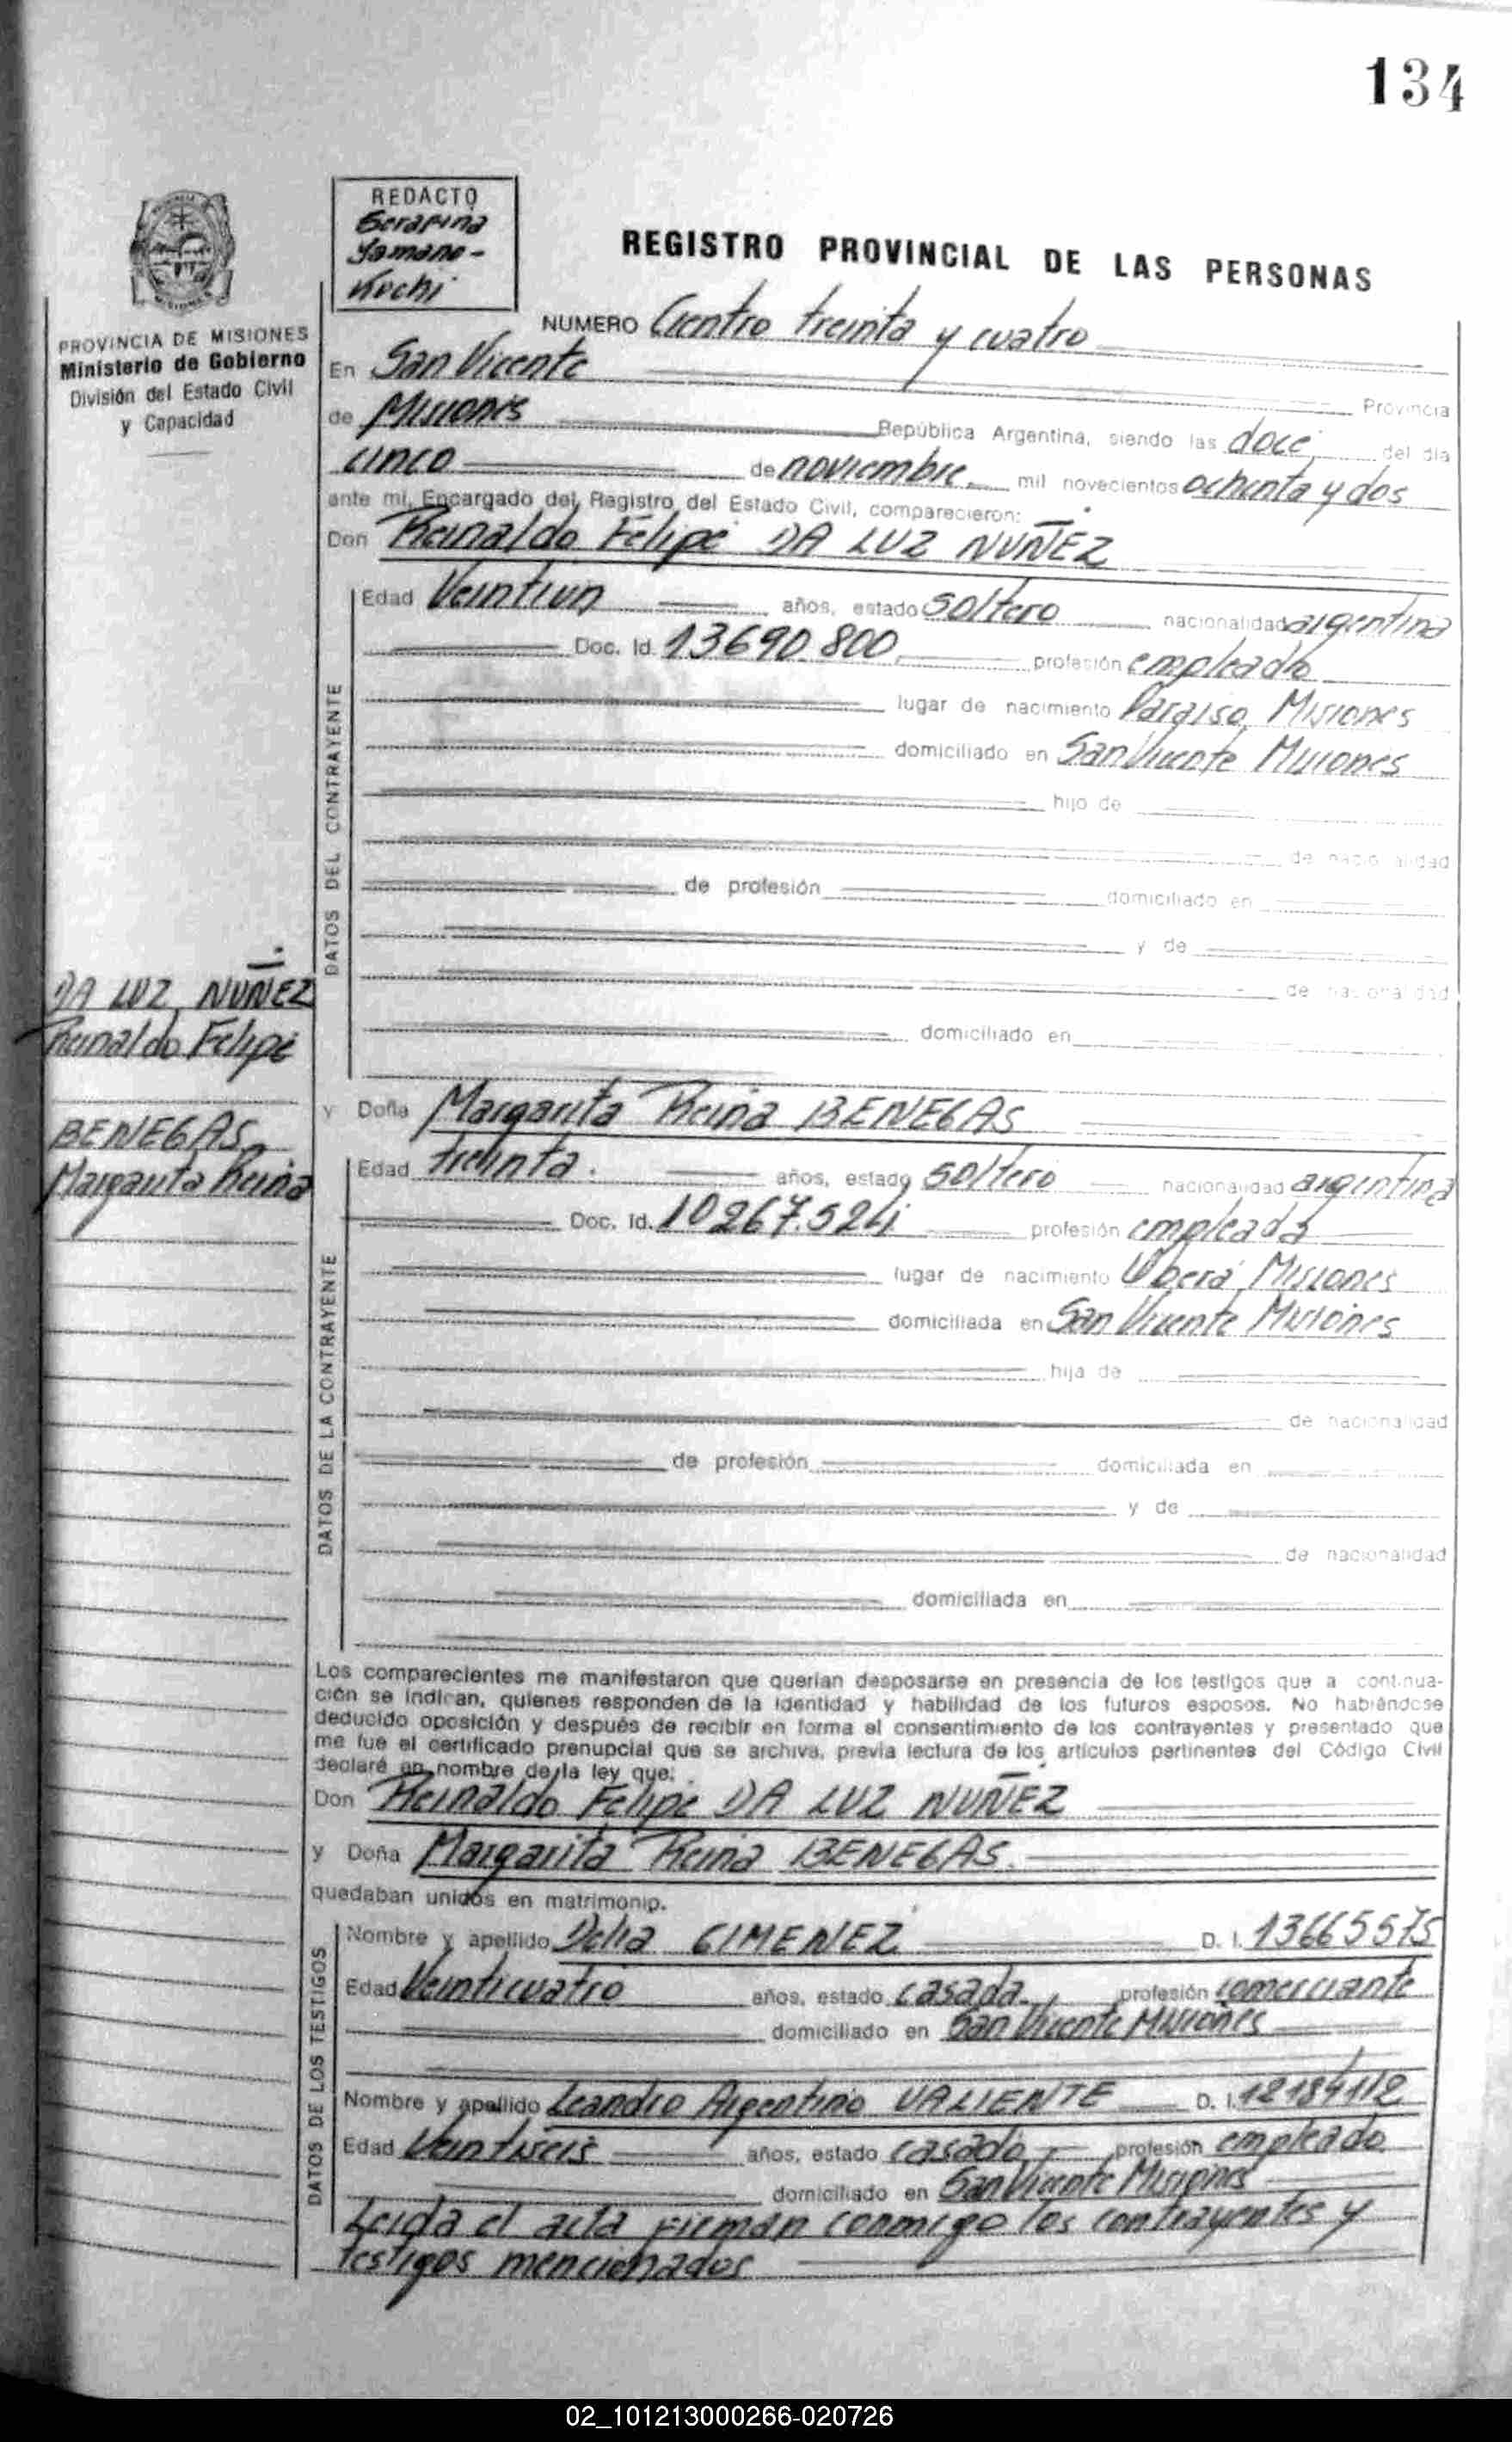 134
REDACTO
Serafina
Yamano-
Kochi
REGISTRO PROVINCIAL DE LAS PERSONAS
PROVINCIA DE MISIONES
Ministerio de Gobierno
División del Estado Civil
y Capacidad
NUMERO Cientro treinta y cuatro
En San Vicente
Provincia
de Misiones República Argentina, siendo las doce del día
cinco de noviembre mil novecientos ochenta y dos
ante mi, Encargado del Registro del Estado Civil, comparecieron:
Don Reinaldo Felipe DA LUZ NUÑEZ
DATOS DEL CONTRAYENTE
Edad Veintiun años, estado soltero nacionalidad argentina
Doc. Id. 13690.800 profesión empleado
lugar de nacimiento Paraiso, Misiones
domiciliado en San Vicente Misiones
hijo de
de nacionalidad
de profesión domiciliado en
y de
de nacionalidad
domiciliado en
DA LUZ NUÑEZ
Reinaldo Felipe
BENEGAS
Margarita Reina
y Doña Margarita Reina BENEGAS
DATOS DE LA CONTRAYENTE
Edad treinta. años, estado soltero nacionalidad argentina
Doc. Id. 10267.524 profesión empleada
lugar de nacimiento Oberá, Misiones
domiciliada en San Vicente Misiones
hija de
de nacionalidad
de profesión domiciliada en
y de
de nacionalidad
domiciliada en
Los comparecientes me manifestaron que querían desposarse en presencia de los testigos que a continua-
ción se indican, quienes responden de la identidad y habilidad de los futuros esposos. No habiéndose
deducido oposición y después de recibir en forma el consentimiento de los contrayentes y presentado que
me fue el certificado prenupcial que se archiva, previa lectura de los artículos pertinentes del Código Civil
declaré en nombre de la ley que:
Don Reinaldo Felipe DA LUZ NUÑEZ
y Doña Margarita Reina BENEGAS
quedaban unidos en matrimonio.
DATOS DE LOS TESTIGOS
Nombre y apellido Delia GIMENEZ D. I. 13665575
Edad Veinticuatro años, estado casada profesión comerciante
domiciliado en San Vicente Misiones
Nombre y apellido Leandro Argentino VALIENTE D. I. 12184112
Edad Veintiseis años, estado casado profesión empleado
domiciliado en San Vicente Misiones
Leida el acta firman conmigo los contrayentes y
testigos mencionados
02_101213000266-020726